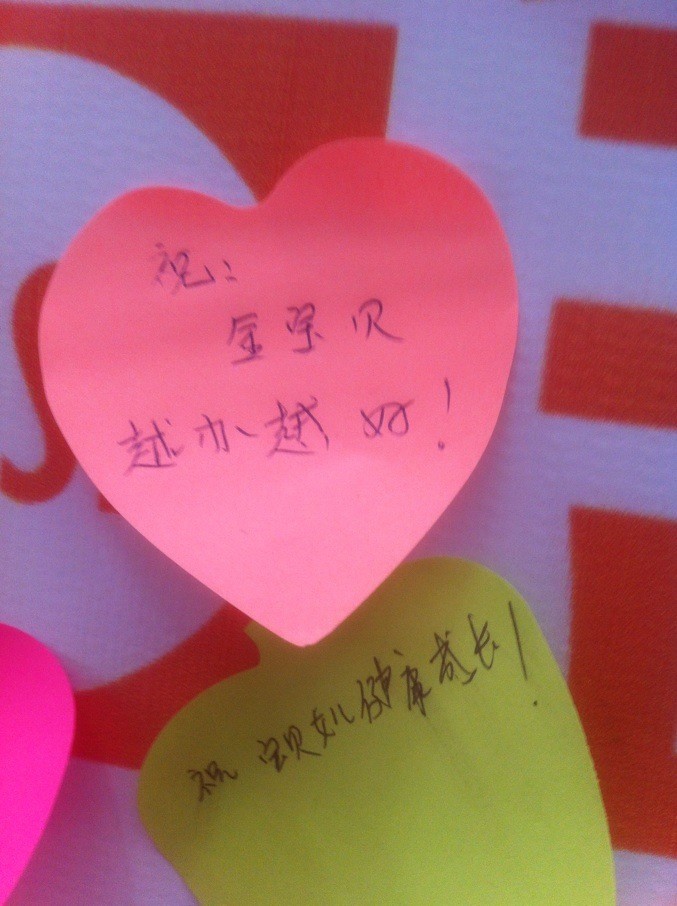 祝：
金宝贝
越办越好！
祝宝贝女儿健康成长！